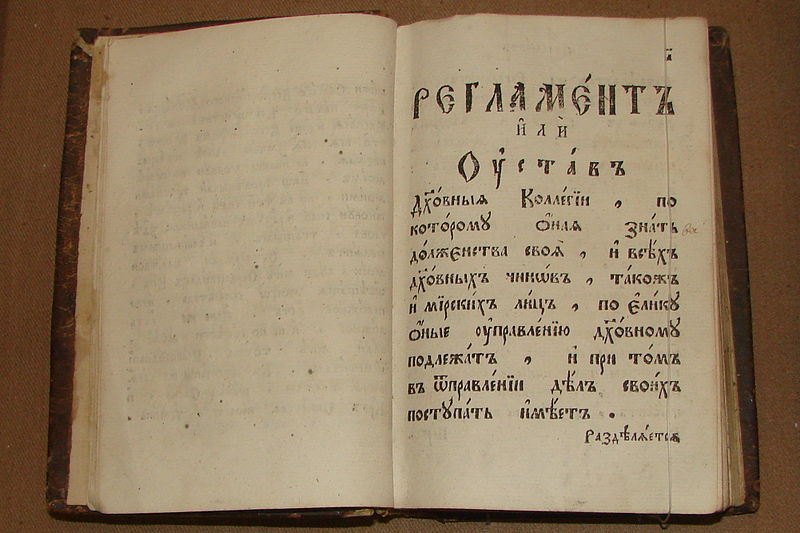 РЕГЛАМЕ́НТЪ
И҆ЛЍ
Оу҆ста́въ
дх҃о́вныѧ Колле́гїи , по
кото́рому ѻ҆́наѧ зна́ть
до́лженства своѧ̀ , и҆ всѣ́хъ
дх҃о́вныхъ чинѡ́въ , та́кожъ
и҆ мїрски́хъ ли́цъ , по є҆ли́ку
ѻ҆́ные оу҆правле́нїю дх҃о́вному
подлежа́тъ , и҆ при то́мъ
въ ѿправле́нїи дѣ́лъ свои́хъ
поступа́ть и҆мѣ́етъ .
Раздѣлѧ́етсѧ